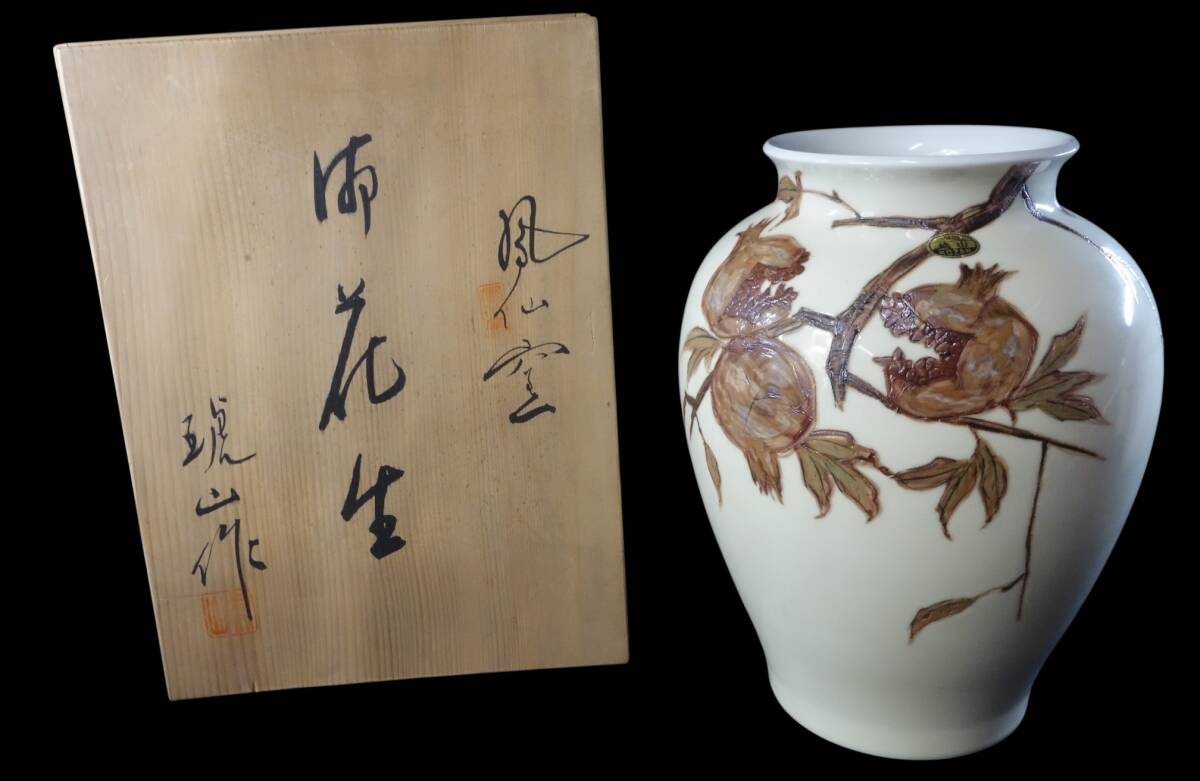 鳳仙窯
御花生
琥山作